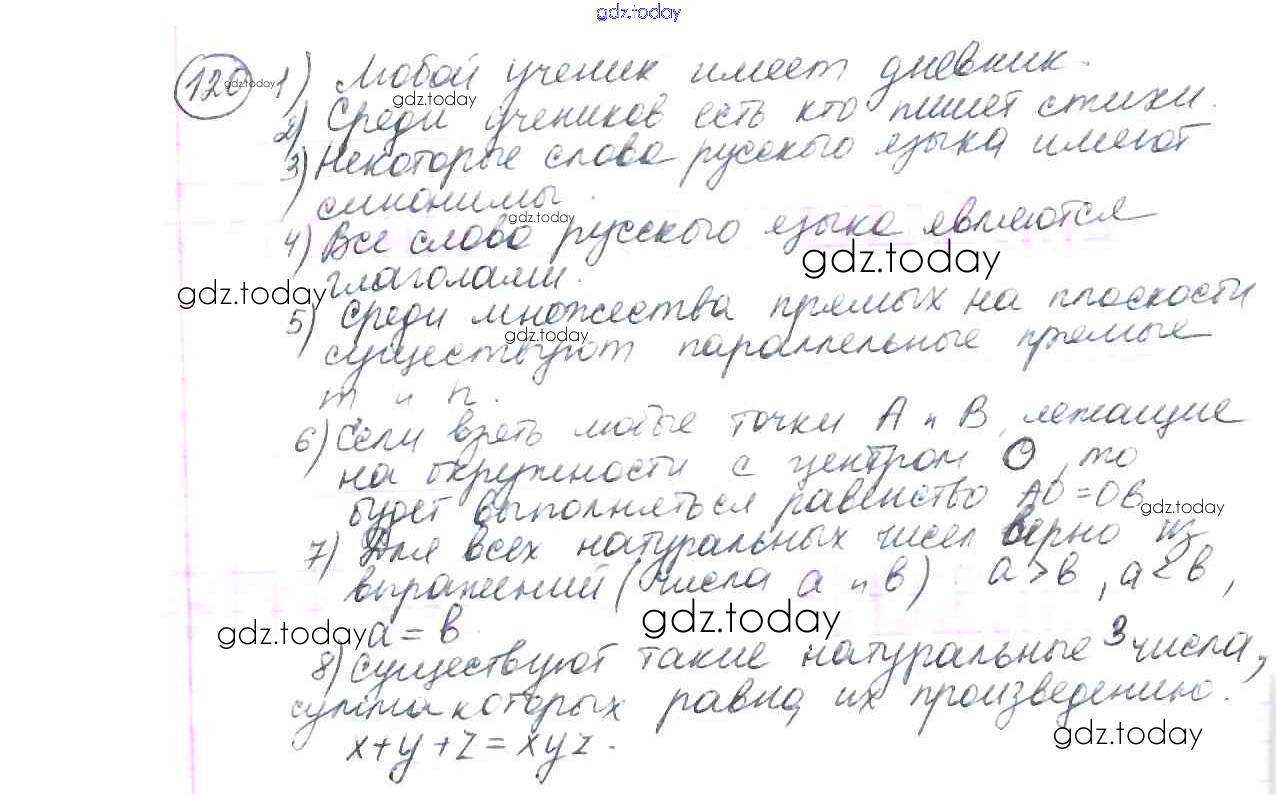 gdz.today
120 gdz.today 1) Любой ученик имеет дневник.
gdz.today
2) Среди учеников есть кто пишет стихи.
3) Некоторые слова русского языка имеют
синонимы.
gdz.today
4) Все слова русского языка являются
gdz.today
глаголами.
gdz.today
5) Среди множества прямых на плоскости
gdz.today
существуют параллельные прямые
m и n.
6) Если взять любые точки A и B, лежащие
на окружности с центром O, то
будет выполняться равенство AO = OB
gdz.today
7) Для всех натуральных чисел верно из
выражений (числа a и b) a > b, a < b,
gdz.today
gdz.today a = b
8) Существуют такие натуральные 3 числа,
сумма которых равна их произведению.
gdz.today
x + y + z = xyz.